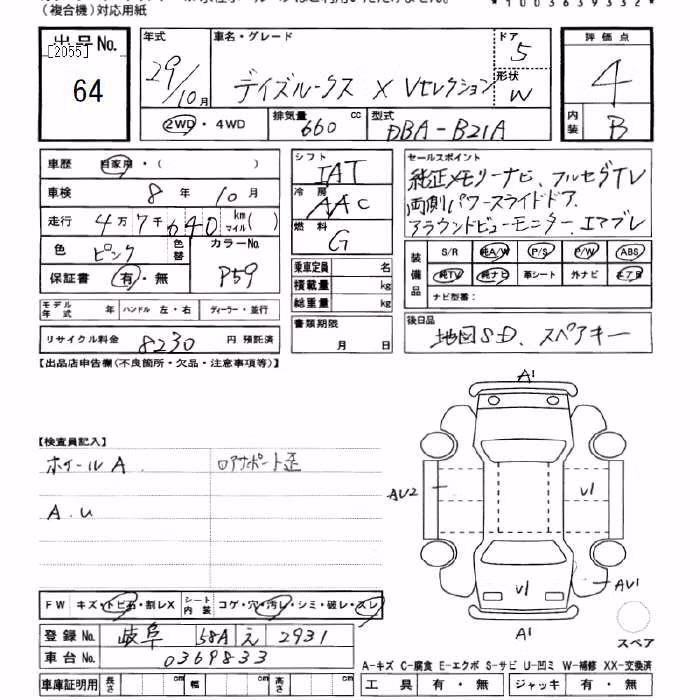 (複合機)対応用紙
*1003639332*
出品No. [2055] 64
年式 29/10月
車名・グレード デイズルークス X Vセレクション
ドア 5
形状 W
評価点 4
内装 B
2WD・4WD
排気量 660 cc
型式 DBA-B21A
車歴 自家用・( )
車検 8年 10月
走行 4万7千640 km マイル( )
色 ピンク 色替 カラーNo. P59
保証書 有・無
モデル年式 年 ハンドル 左・右 ディーラー・並行
リサイクル料金 8230 円 預託済
シフト IAT
冷房 AAC
燃料 G
乗車定員 名
積載量 kg
総重量 kg
書類期限 月 日
セールスポイント
純正メモリーナビ、フルセグTV
両側パワースライドドア、
アラウンドビューモニター、エマブレ
装備品 S/R 純A/W P/S P/W ABS
純TV 純ナビ 革シート 外ナビ エアB
ナビ型番:
後日品 地図SD、スペアキー
【出品店申告欄(不良箇所・欠品・注意事項等)】
【検査員記入】
ホイールA. ロアサポート歪
A.U
A1
AU2
U1
U1
AU1
A1
スペア
FW キズ・トビ石・割レX シート内装 コゲ・穴・汚レ・シミ・破レ・スレ
登録No. 岐阜 58A え 2931
車台No. 0369833
車庫証明用 長さ cm 幅 cm 高さ cm
A-キズ C-腐食 E-エクボ S-サビ U-凹ミ W-補修 XX-交換済
工具 有・無 ジャッキ 有・無